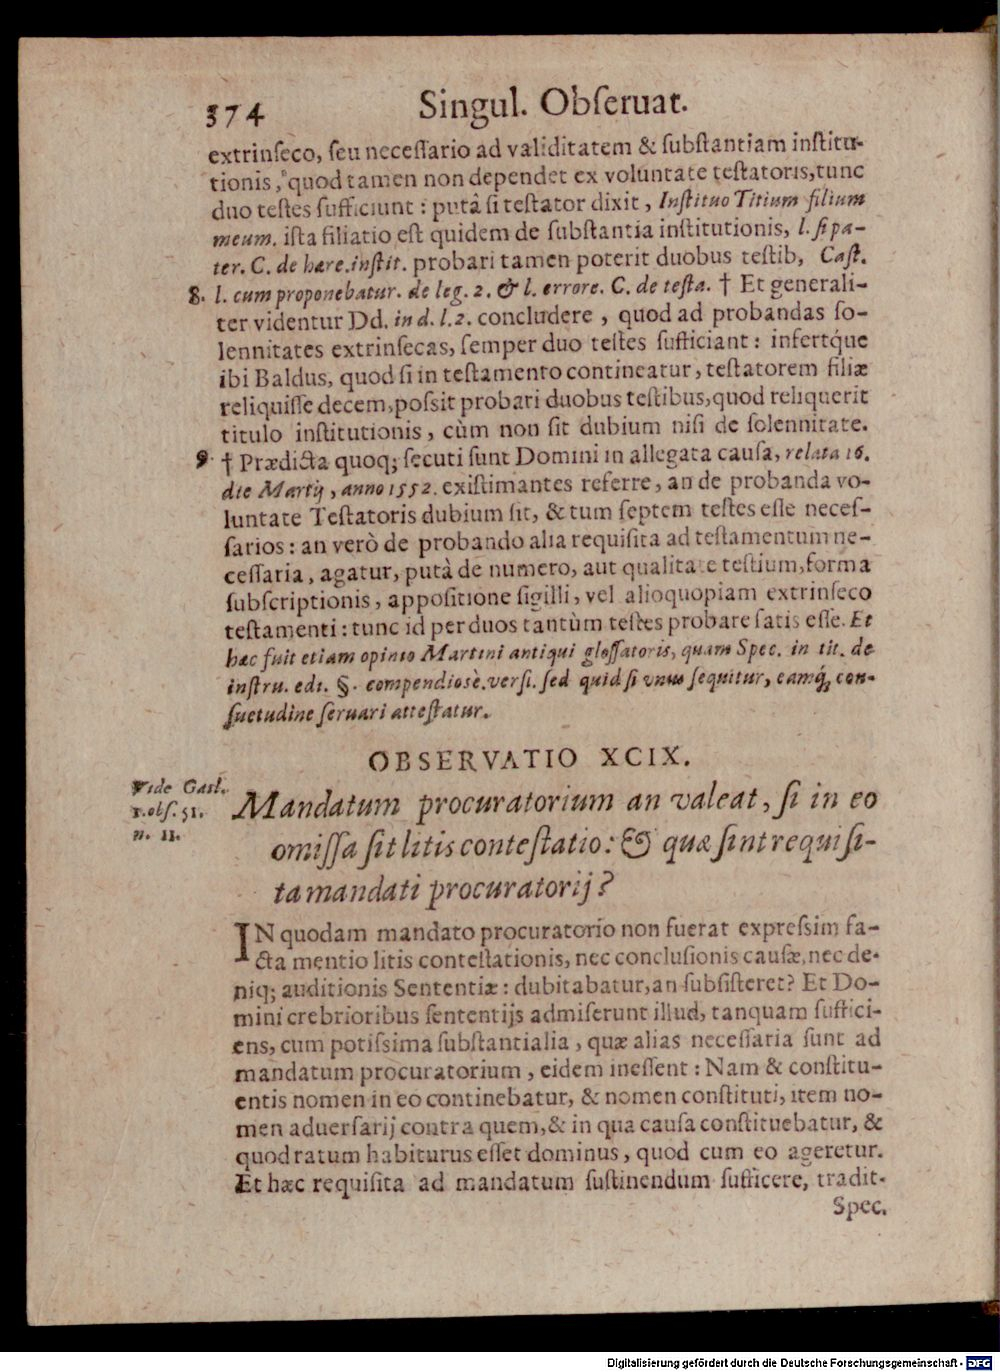 374 Singul. Obſeruat.
extrinſeco, ſeu neceſſario ad validitatem & ſubſtantiam inſtitu-
tionis, quod tamen non dependet ex voluntate teſtatoris, tunc
duo teſtes ſufficiunt: putâ ſi teſtator dixit, Inſtituo Titium filium
meum. iſta filiatio eſt quidem de ſubſtantia inſtitutionis, l. ſi pa-
ter. C. de hære. inſtit. probari tamen poterit duobus teſtib, Caſt.
8. l. cum proponebatur. de leg. 2. & l. errore. C. de teſta. † Et generali-
ter videntur Dd. in d. l. 2. concludere, quod ad probandas ſo-
lennitates extrinſecas, ſemper duo teſtes ſufficiant: infertq́ue
ibi Baldus, quod ſi in teſtamento contineatur, teſtatorem filiæ
reliquiſſe decem, poſsit probari duobus teſtibus, quod reliquerit
titulo inſtitutionis, cùm non ſit dubium niſi de ſolennitate.
9. † Prædicta quoq; ſecuti ſunt Domini in allegata cauſa, relata 16.
die Martij, anno 1552. exiſtimantes referre, an de probanda vo-
luntate Teſtatoris dubium ſit, & tum ſeptem teſtes eſſe neceſ-
ſarios: an verò de probando alia requiſita ad teſtamentum ne-
ceſſaria, agatur, putà de numero, aut qualitate teſtium, forma
ſubſcriptionis, appoſitione ſigilli, vel alioquopiam extrinſeco
teſtamenti: tunc id per duos tantùm teſtes probare ſatis eſſe. Et
hæc fuit etiam opinio Martini antiqui gloſſatoris, quam Spec. in tit. de
inſtru. edi. §. compendiose. verſi. ſed quid ſi vnus ſequitur, eamq́; con-
ſuetudine ſeruari atteſtatur.
OBSERVATIO XCIX.
Vide Gail.
1. obſ. 51.
n. 11.
Mandatum procuratorium an valeat, ſi in eo
omiſſa ſit litis conteſtatio: & quæ ſint requiſi-
ta mandati procuratorij?
IN quodam mandato procuratorio non fuerat expreſsim fa-
cta mentio litis conteſtationis, nec concluſionis cauſæ, nec de-
niq; auditionis Sententiæ: dubitabatur, an ſubſiſteret? Et Do-
mini crebrioribus ſententijs admiſerunt illud, tanquam ſuffici-
ens, cum potiſsima ſubſtantialia, quæ alias neceſſaria ſunt ad
mandatum procuratorium, eidem ineſſent: Nam & conſtitu-
entis nomen in eo continebatur, & nomen conſtituti, item no-
men aduerſarij contra quem, & in qua cauſa conſtituebatur, &
quod ratum habiturus eſſet dominus, quod cum eo ageretur.
Et hæc requiſita ad mandatum ſuſtinendum ſufficere, tradit-
Spec.
Digitalisierung gefördert durch die Deutsche Forschungsgemeinschaft - DFG